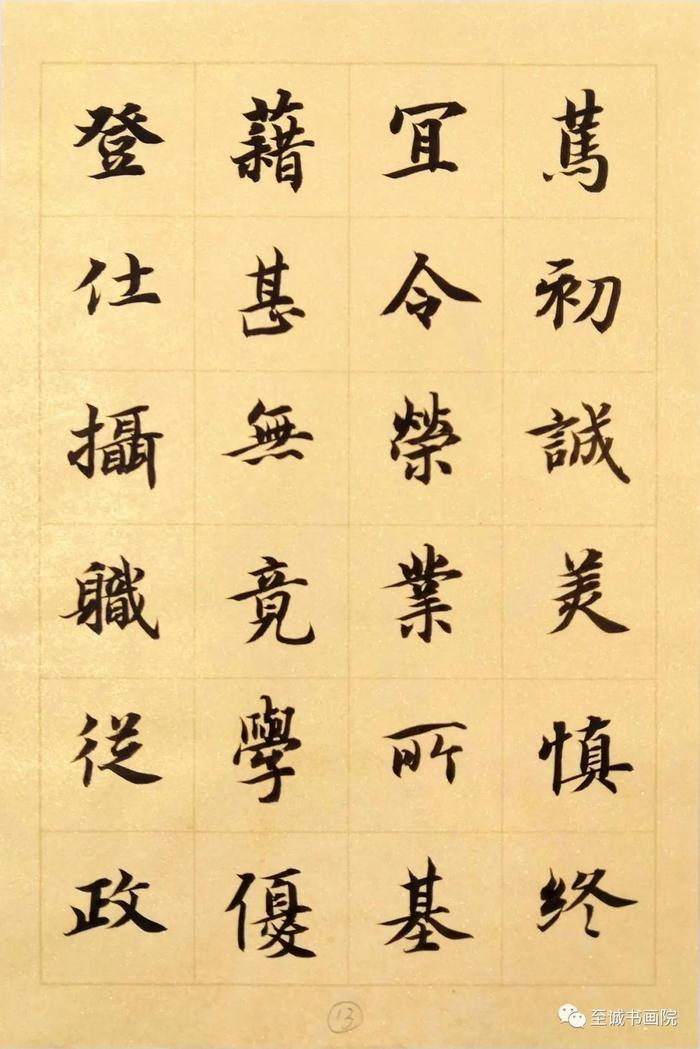 篤初誠美慎終
宜令榮業所基
藉甚無竟學優
登仕攝職從政
13
至诚书画院